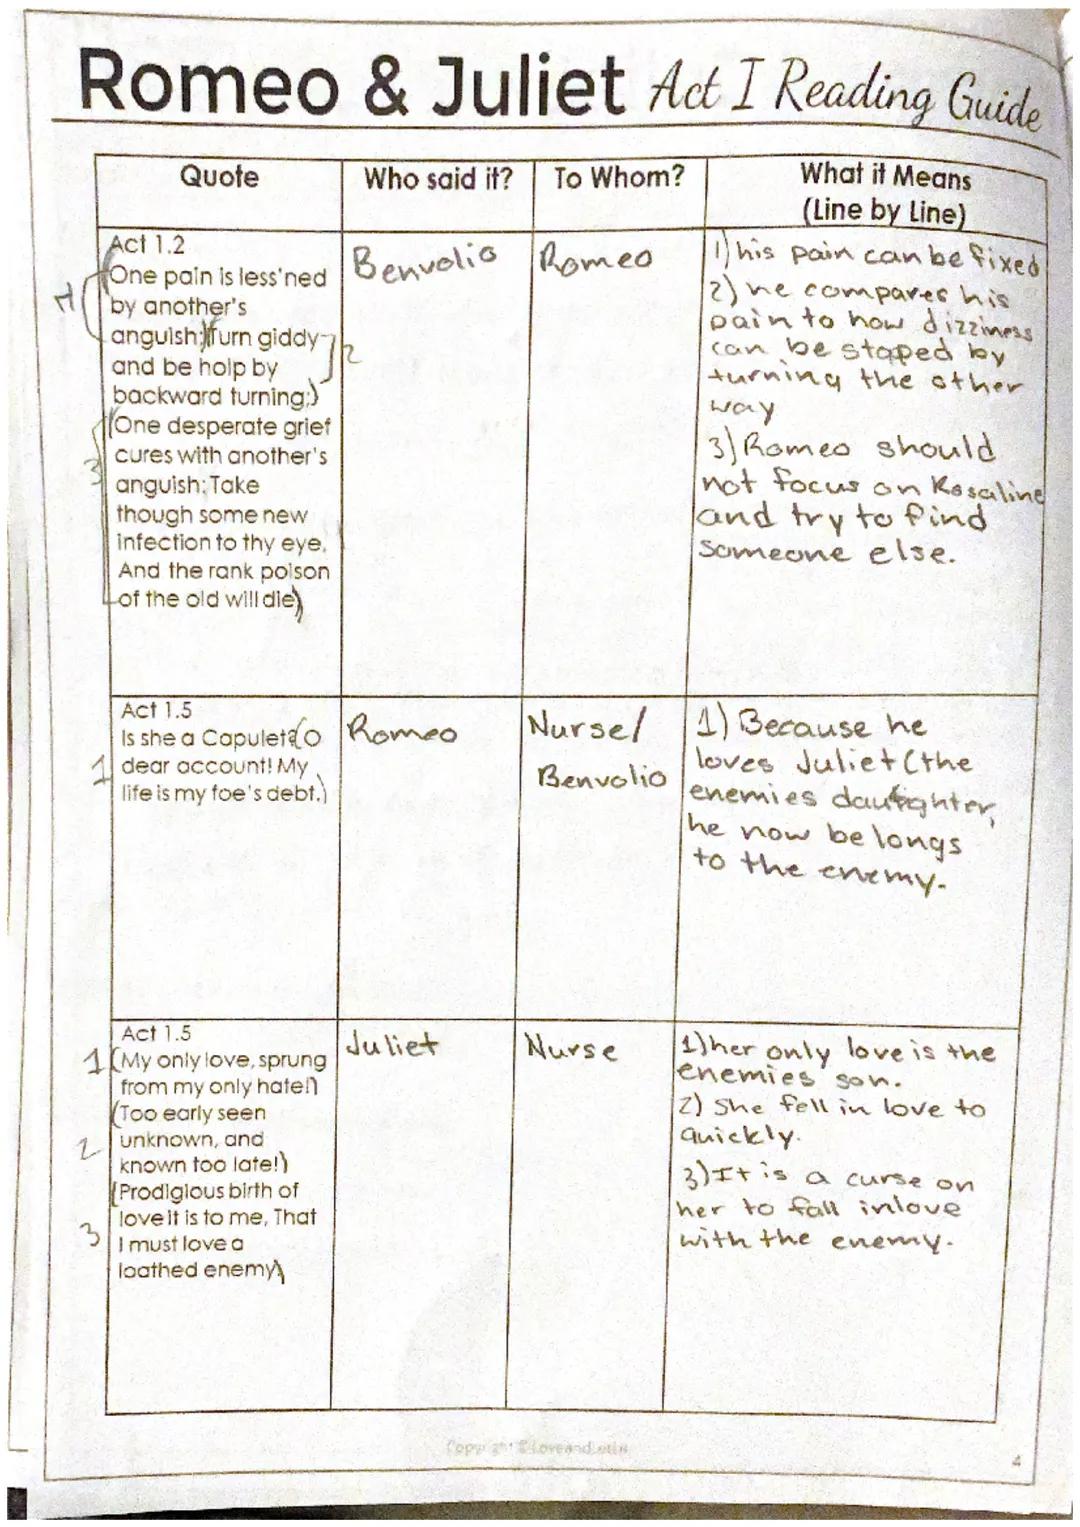 Romeo & Juliet Act I Reading Guide
Quote
Who said it?
To Whom?
What it Means
(Line by Line)
Act 1.2
One pain is less'ned
by another's
anguish; Turn giddy
and be holp by
backward turning;)
(One desperate grief
cures with another's
anguish; Take
though some new
infection to thy eye,
And the rank poison
of the old will die)
1
2
3
Benvolio
Romeo
1) his pain can be fixed
2) he compares his
pain to how dizziness
can be stoped by
turning the other
way
3) Romeo should
not focus on Rosaline
and try to find
someone else.
Act 1.5
Is she a Capulet? (O
dear account! My
life is my foe's debt.)
1
Romeo
Nurse/
Benvolio
1) Because he
loves Juliet (the
enemies daughter,
he now belongs
to the enemy.
Act 1.5
(My only love, sprung
from my only hate!)
(Too early seen
unknown, and
known too late!)
(Prodigious birth of
love it is to me, That
I must love a
loathed enemy)
1
2
3
Juliet
Nurse
1) her only love is the
enemies son.
2) She fell in love to
quickly.
3) It is a curse on
her to fall inlove
with the enemy.
4